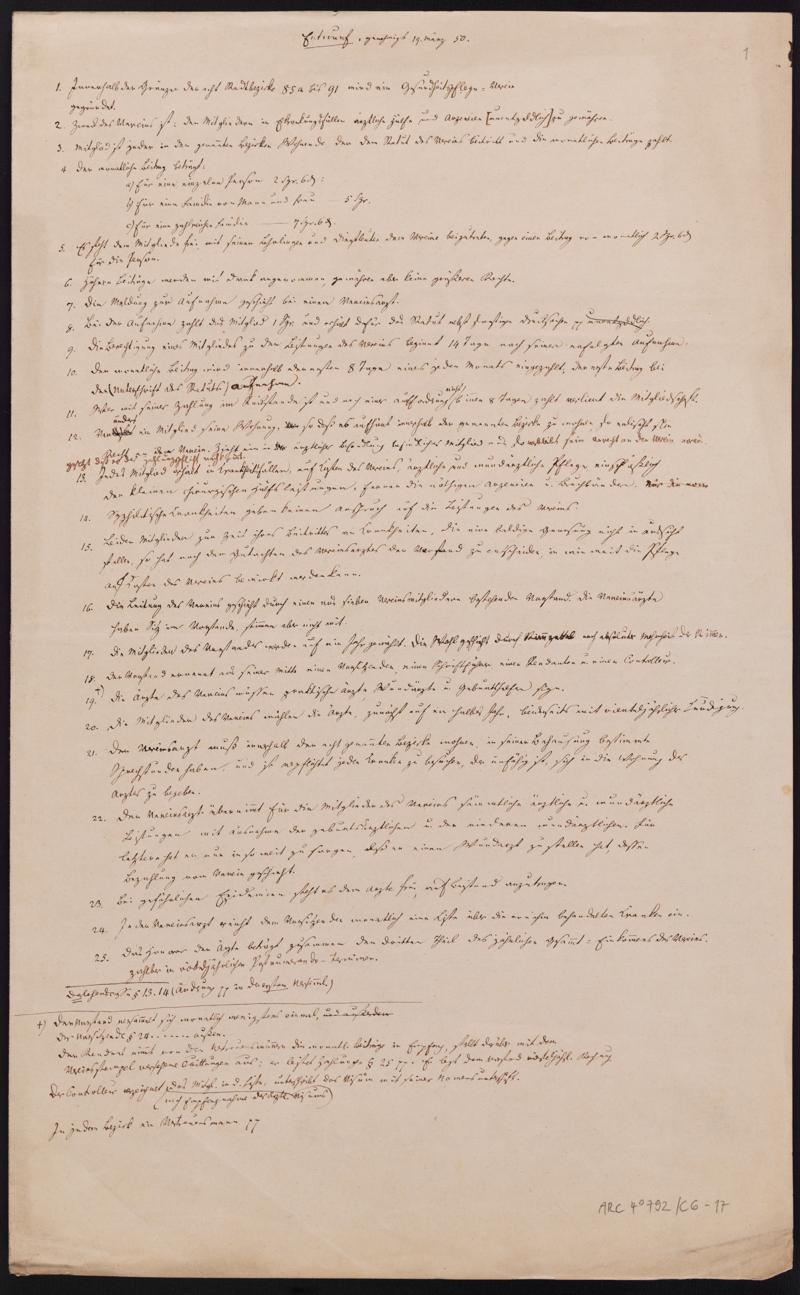 Entwurf, genehmigt 19. März 50.
1
1. Innerhalb der Gränzen der acht Stadtbezirke 85a bis 91 wird ein Gesundheitspflege-Verein
gegründet.
2. Zweck des Vereins ist: den Mitgliedern in Erkrankungsfällen ärztliche Hülfe und Arzneien [unentgeldlich] zu gewähren.
3. Mitglied ist jeder in den genannten Bezirken Wohnende der dem Statut des Vereins beitritt und die monatlichen Beiträge zahlt.
4. Der monatliche Beitrag beträgt:
a) für eine einzelne Person 2 Sgr. 6 d:
b) für eine Familie von Mann und Frau — 5 Sgr.
c) für eine zahlreichere Familie — 7 Sgr. 6 d.
5. Es steht dem Mitgliede frei mit seinen Lehrlingen und Dienstboten dem Vereine beizutreten, gegen einen Beitrag von monatlich 2 Sgr. 6 d
für die Person.
6. Höhere Beiträge werden mit Dank angenommen, gewähren aber keine größeren Rechte.
7. Die Meldung zur Aufnahme geschieht bei einem Vereinsarzt.
8. Bei der Aufnahme zahlt das Mitglied 1 Sgr. und erhält dafür das Statut nebst pp unentgeldlich.
9. Die Berechtigung eines Mitgliedes zu den Leistungen des Vereins beginnt 14 Tage nach seiner erfolgten Aufnahme.
10. Der monatliche Beitrag wird innerhalb der ersten 8 Tage eines jeden Monats eingezahlt, der erste Beitrag bei
der (Unterschrift des Statuts) Aufnahme.
11. Wer mit seiner Zahlung im Rückstande ist und nach einer Aufforderung nicht binnen 8 Tagen zahlt verliert die Mitgliedschaft.
12. Verändert ein Mitglied seine Wohnung, so daß es aufhört innerhalb der genannten Bezirke zu wohnen, so erlischt sein
Recht an den Verein. Zieht ein in der ärztlicher Behandlung befindliches Mitglied
13. Jedes Mitglied erhält in Krankheitsfällen, auf Kosten des Vereins, ärztliche und wundärztliche Pflege, einschließlich
der kleinen chirurgischen Hülfsleistungen, ferner die nöthigen Arzeneien u. Bruchbänder.
14. Syphilitische Krankheiten geben keinen Anspruch auf die Leistungen des Vereins.
15. Leiden Mitglieder zur Zeit ihres Beitrittes an Krankheiten, die eine baldige Genesung nicht in Aussicht
stellen, so hat nach dem Gutachten des Vereinsarztes der Vorstand zu entscheiden, in wie weit die Pflege
auf Kosten des Vereins bewirkt werden kann.
16. Die Leitung des Vereins geschieht durch einen aus sieben Vereinsmitgliedern bestehenden Vorstand. Die Vereinsärzte
haben Sitz im Vorstande, stimmen aber nicht mit.
17. Die Mitglieder des Vorstandes werden auf ein Jahr gewählt. Die Wahl geschieht durch Stimmzettel nach absoluter Mehrheit der Stimmen.
18. Der Vorstand ernennt aus seiner Mitte einen Vorsitzenden, einen Schriftführer einen Rendanten u. einen Controlleur.
19. †) Die Ärzte des Vereins müssen praktische Ärzte Wundärzte u. Geburtshelfer sein.
20. Die Mitglieder des Vereins wählen die Ärzte, zunächst auf ein halbes Jahr, beiderseits mit vierteljährlicher Kündigung.
21. Der Vereinsarzt muß innerhalb der acht genannten Bezirke wohnen, in seiner Behausung bestimmte
Sprechstunden haben, und ist verpflichtet jeden Kranken zu besuchen, der unfähig ist, sich in die Wohnung des
Arztes zu begeben.
22. Der Vereinsarzt übernimmt für die Mitglieder des Vereins sämmtliche ärztliche u. wundärztliche
Leistungen mit Ausnahme der geburtsärztlichen u. der niederen wundärztlichen. Für
letztere hat er nur in so weit zu sorgen, daß er einen Wundarzt zu stellen hat, dessen
Bezahlung vom Verein geschieht.
23. Bei gefährlichen Epidemien steht es dem Arzte frei, auf Beistand anzutragen.
24. Jeder Vereinsarzt reicht dem Vorsitzenden monatlich eine Liste über die von ihm behandelten Kranken ein.
25. Das Honorar der Ärzte beträgt zusammen den dritten Theil des jährlichen Gesammt-Einkommens des Vereins,
zahlbar in vierteljährlichen Postnumerando-Terminen.
§ 13. 14 (Änderung pp in der ersten Versamml.)
†) Der Vorstand versammelt sich monatlich wenigstens einmal, und außerdem
Der Rendant nimmt von den Vertrauensmännern die monatl. Beiträge in Empfang, stellt darüber mit dem
Vereinsstempel versehene Quittungen aus; er leistet Zahlungen § 25 pp. Er legt dem Vorstand vierteljährl. Rechnung
Der Controlleur verzeichnet das Mitgl. in d. Liste, unterschreibt das Visum mit seiner Namensunterschrift.
In jedem Bezirk ein Vertrauensmann pp
ARC 4° 792/C6-17